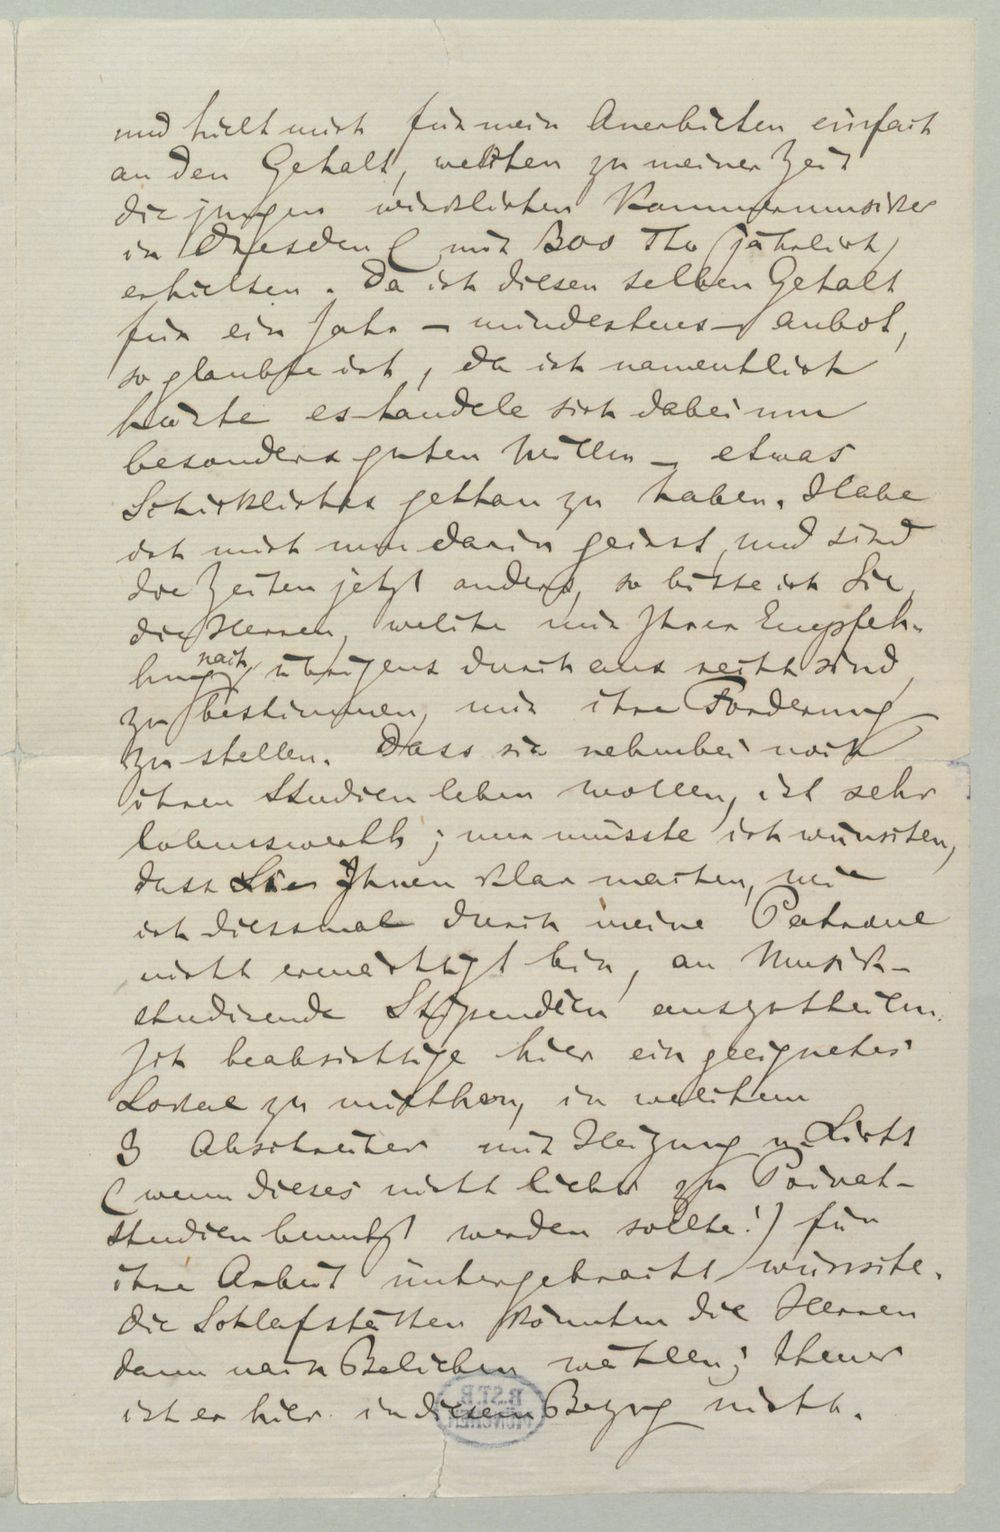 und hielt mich für mein Anerbieten einfach
an den Gehalt, welchen zu meiner Zeit
die jungen wirklichen Kammermusiker
in Dresden (mit 300 Thr jährlich)
erhielten. Da ich diesen selben Gehalt
für ein Jahr – mindestens – anbot,
so glaubte ich, da ich namentlich
hörte es handele sich dabei um
besonders guten Willen – etwas
Schickliches gethan zu haben. Habe
ich mich nun darin geirrt, und sind
die Zeiten jetzt anders, so bitte ich Sie,
die Herren, welche mir Ihrer Empfeh-
lung nach übrigens durchaus recht sind,
zu bestimmen, mir ihre Forderung
zu stellen. Dass sie nebenbei noch
ihren Studien leben wollen, ist sehr
lobenswerth; nur müsste ich wünschen,
dass Sie Ihnen klar machen, wie
ich diessmal durch meine Patrone
nicht ermächtigt bin, an Musik-
studirende Stipendien auszutheilen.
Ich beabsichtige hier ein geeignetes
Lokal zu miethen, in welchem
3 Abschreiber mit Heizung u. Licht
(wenn dieses nicht lieber zu Privat-
studien benutzt werden sollte!) für
ihre Arbeit untergebracht wünsche.
Die Schlafstätten könnten die Herren
dann nach Belieben wählen; theuer
ist es hier in diesem Bezug nicht.
B.ST.B.
MÜNCHEN